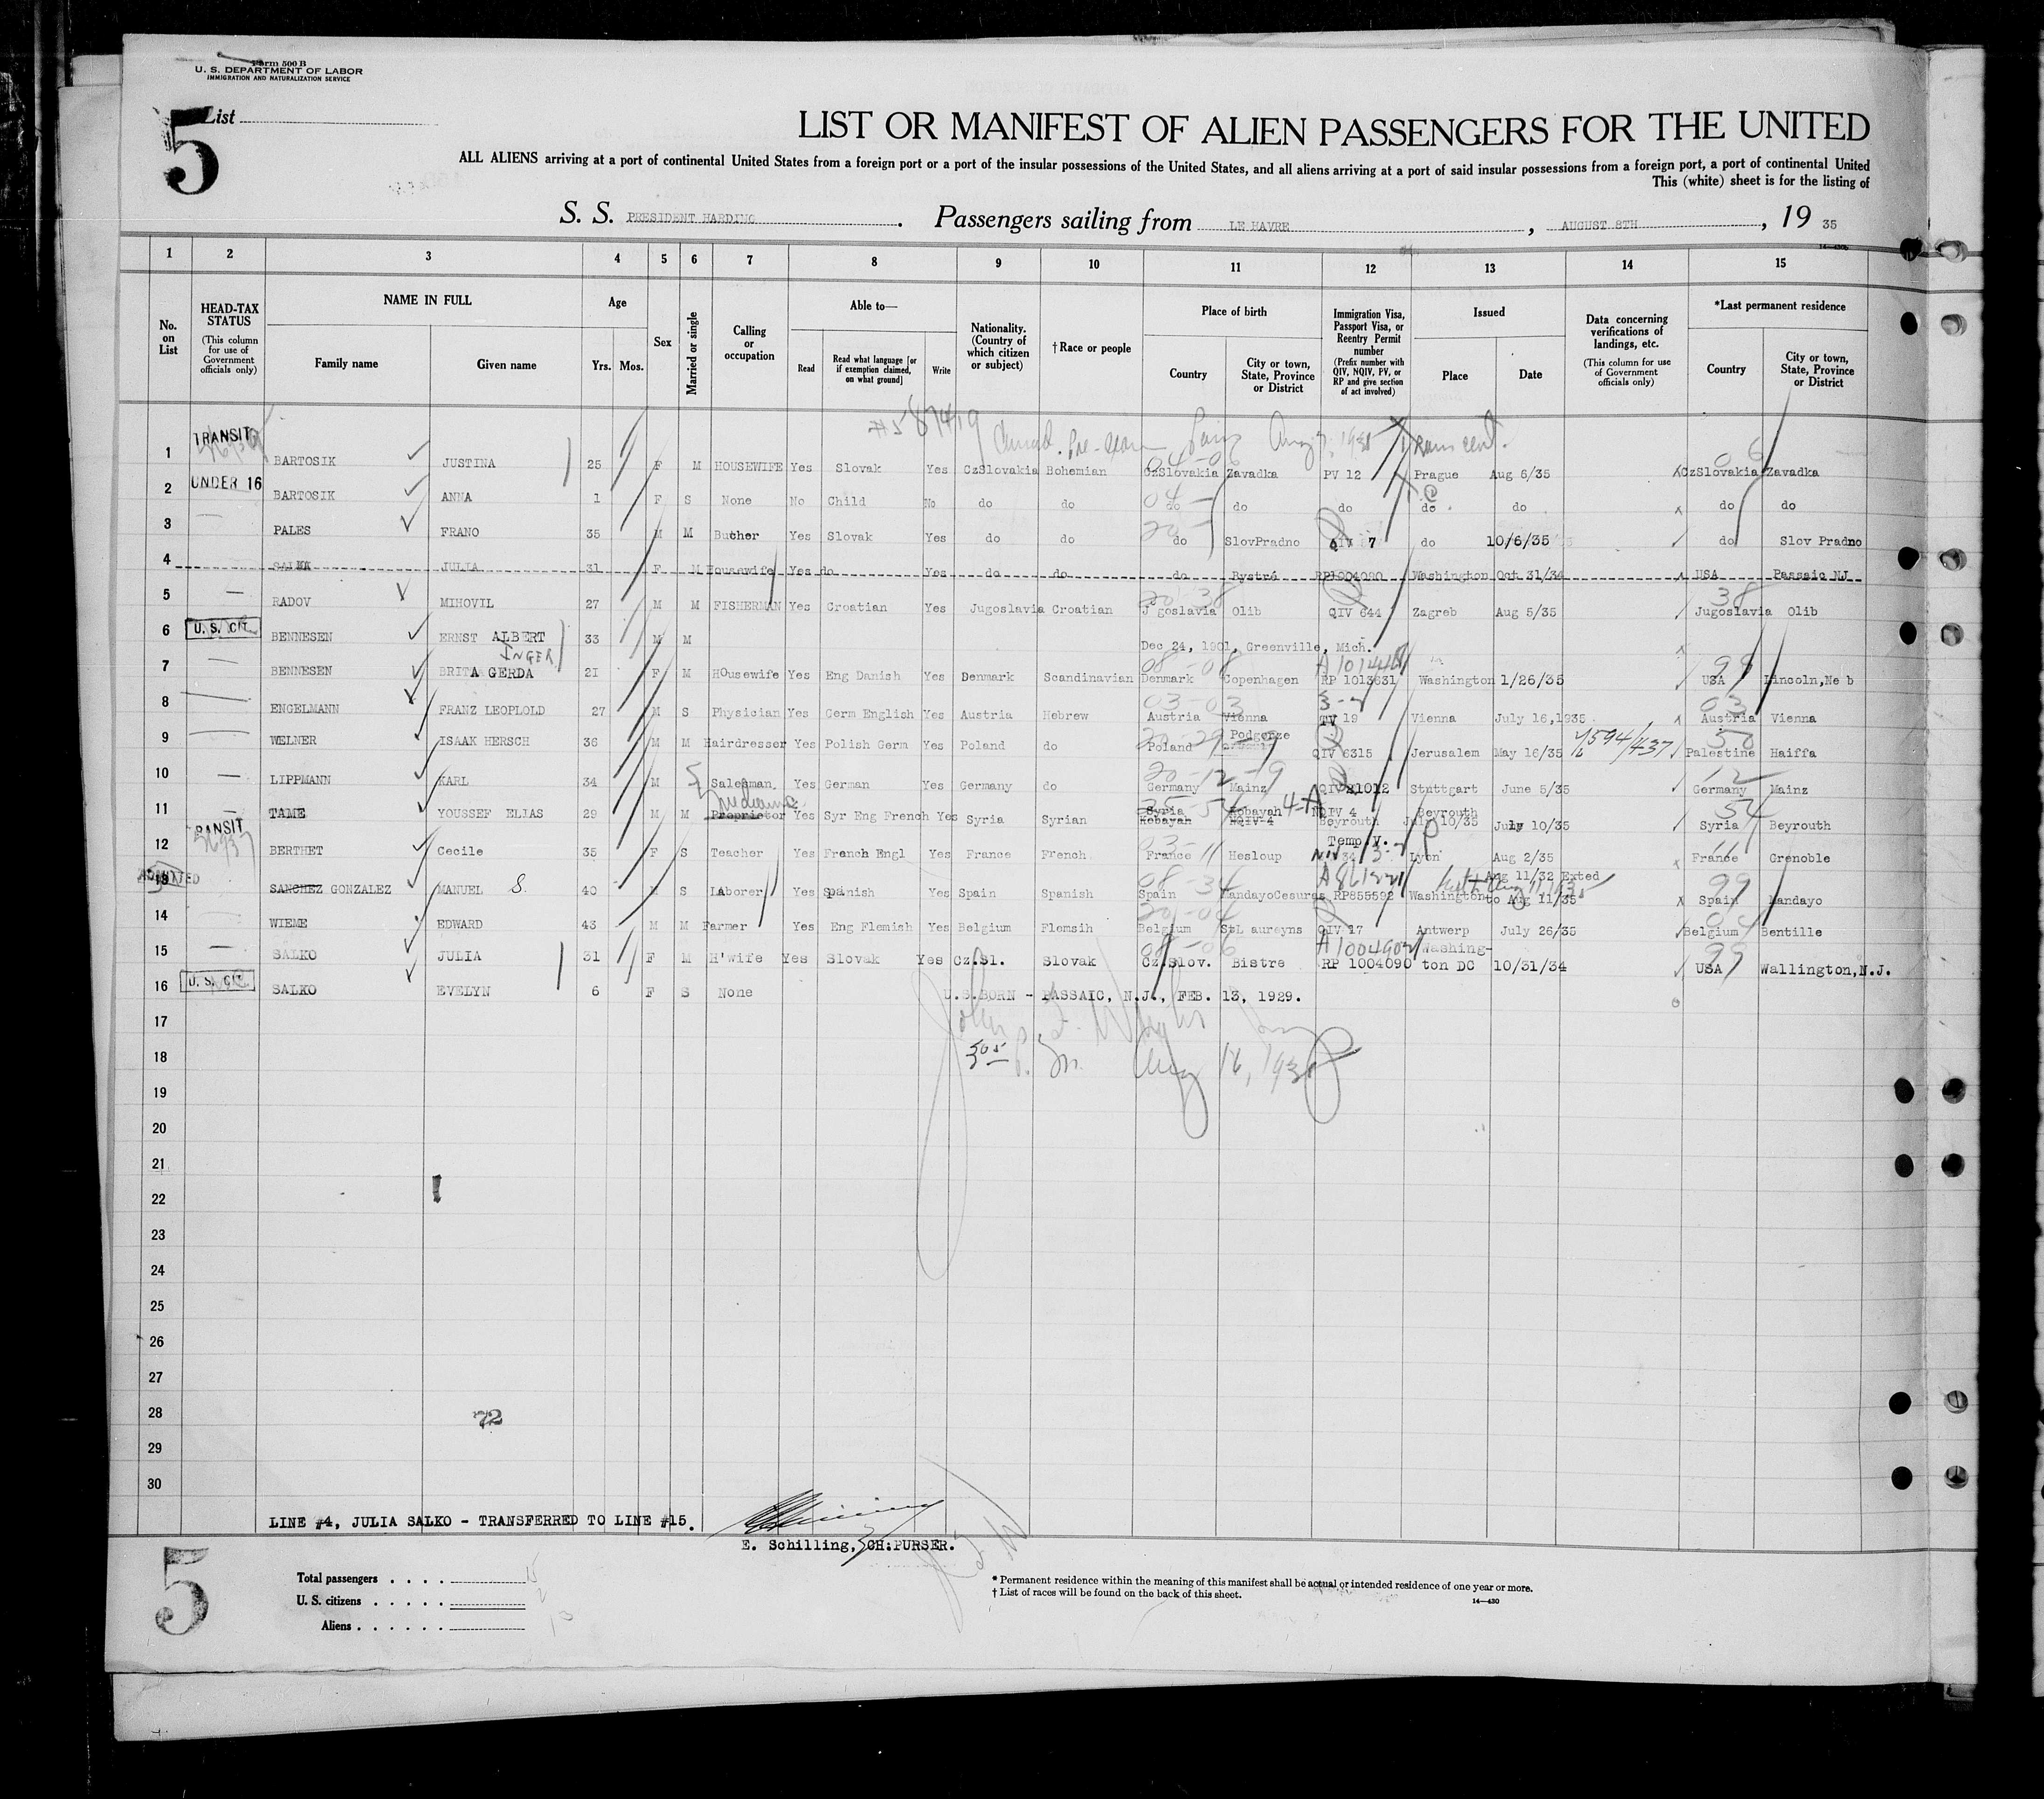 Form 500 B
U. S. DEPARTMENT OF LABOR
IMMIGRATION AND NATURALIZATION SERVICE
5
List
LIST OR MANIFEST OF ALIEN PASSENGERS FOR THE UNITED
ALL ALIENS arriving at a port of continental United States from a foreign port or a port of the insular possessions of the United States, and all aliens arriving at a port of said insular possessions from a foreign port, a port of continental United
This (white) sheet is for the listing of
S. S. PRESIDENT HARDING. Passengers sailing from LE HAVRE, AUGUST 8TH, 19 35
1 2 3 4 5 6 7 8 9 10 11 12 13 14 15
No. on List
HEAD-TAX STATUS (This column for use of Government officials only)
NAME IN FULL Family name Given name
Age Yrs. Mos.
Sex
Married or single
Calling or occupation
Able to— Read Read what language [or if exemption claimed, on what ground] Write
Nationality. (Country of which citizen or subject)
†Race or people
Place of birth Country City or town, State, Province or District
Immigration Visa, Passport Visa, or Reentry Permit number (Prefix number with QIV, NQIV, PV, or RP and give section of act involved)
Issued Place Date
Data concerning verifications of landings, etc. (This column for use of Government officials only)
*Last permanent residence Country City or town, State, Province or District
#587419 Aug 1935
1 TRANSIT BARTOSIK JUSTINA 25 F M HOUSEWIFE Yes Slovak Yes CzSlovakia Bohemian CzSlovakia Zavadka PV 12 Prague Aug 6/35 CzSlovakia Zavadka
2 UNDER 16 BARTOSIK ANNA 1 F S None No Child No do do do do do do do do do
3 PALES FRANO 35 M M Buther Yes Slovak Yes do do do SlovPradno QIV 7 do 10/6/35 do Slov Pradno
4 SALKA JULIA 31 F M Housewife Yes do Yes do do do Bystré RP1004090 Washington Oct 31/34 USA Passaic NJ
5 RADOV MIHOVIL 27 M M FISHERMAN Yes Croatian Yes Jugoslavia Croatian J goslavia Olib QIV 644 Zagreb Aug 5/35 Jugoslavia Olib
6 U. S. CIT. BENNESEN ERNST ALBERT 33 M M Dec 24, 1901, Greenville, Mich.
INGER
7 BENNESEN BRITA GERDA 21 F M HOusewife Yes Eng Danish Yes Denmark Scandinavian Denmark Copenhagen RP 1013631 Washington 1/26/35 USA Lincoln,Ne b
8 ENGELMANN FRANZ LEOPLOLD 27 M S Physician Yes Germ English Yes Austria Hebrew Austria Vienna TV 19 Vienna July 16,1935 Austria Vienna
9 WELNER ISAAK HERSCH 36 M M Hairdresser Yes Polish Germ Yes Poland do Poland Podgorze QIV 6315 Jerusalem May 16/35 Palestine Haiffa
10 LIPPMANN KARL 34 M S Salesman Yes German Yes Germany do Germany Mainz QIV 21012 Stuttgart June 5/35 Germany Mainz
11 TAME YOUSSEF ELIAS 29 M M Proprietor Yes Syr Eng French Yes Syria Syrian Syria Kobayah NQIV 4 Beyrouth July 10/35 Syria Beyrouth
Kobayah NQIV-4 Beyrouth July 10/35
TRANSIT
Temp.V.
12 BERTHET Cecile 35 F S Teacher Yes French Engl Yes France French France Hesloup 34 Lyon Aug 2/35 France Grenoble
ADMITTED
Aug 11/32 Exted
13 SANCHEZ GONZALEZ MANUEL S. 40 M S Laborer Yes Spanish Yes Spain Spanish Spain MandayoCesuras RP855592 Washington to Aug 11/35 Spain Mandayo
14 WIEME EDWARD 43 M M Farmer Yes Eng Flemish Yes Belgium Flemsih Belgium StL aureyns QIV 17 Antwerp July 26/35 Belgium Bentille
15 SALKO JULIA 31 F M H'wife Yes Slovak Yes Cz.Sl. Slovak Cz.Slov. Bistre RP 1004090 Washing-ton DC 10/31/34 USA Wallington,N.J.
16 U. S. CIT. SALKO EVELYN 6 F S None U.S.BORN - PASSAIC, N.J., FEB. 13, 1929.
17
18 Aug 16, 1935
19
20
21
22
23
24
25
26
27
28 72
29
30
LINE #4, JULIA SALKO - TRANSFERRED TO LINE #15.
E. Schilling, CH:PURSER.
5
Total passengers . . . . 15
U. S. citizens . . . . . 2
Aliens . . . . . . 13
* Permanent residence within the meaning of this manifest shall be actual or intended residence of one year or more.
† List of races will be found on the back of this sheet.
14—430